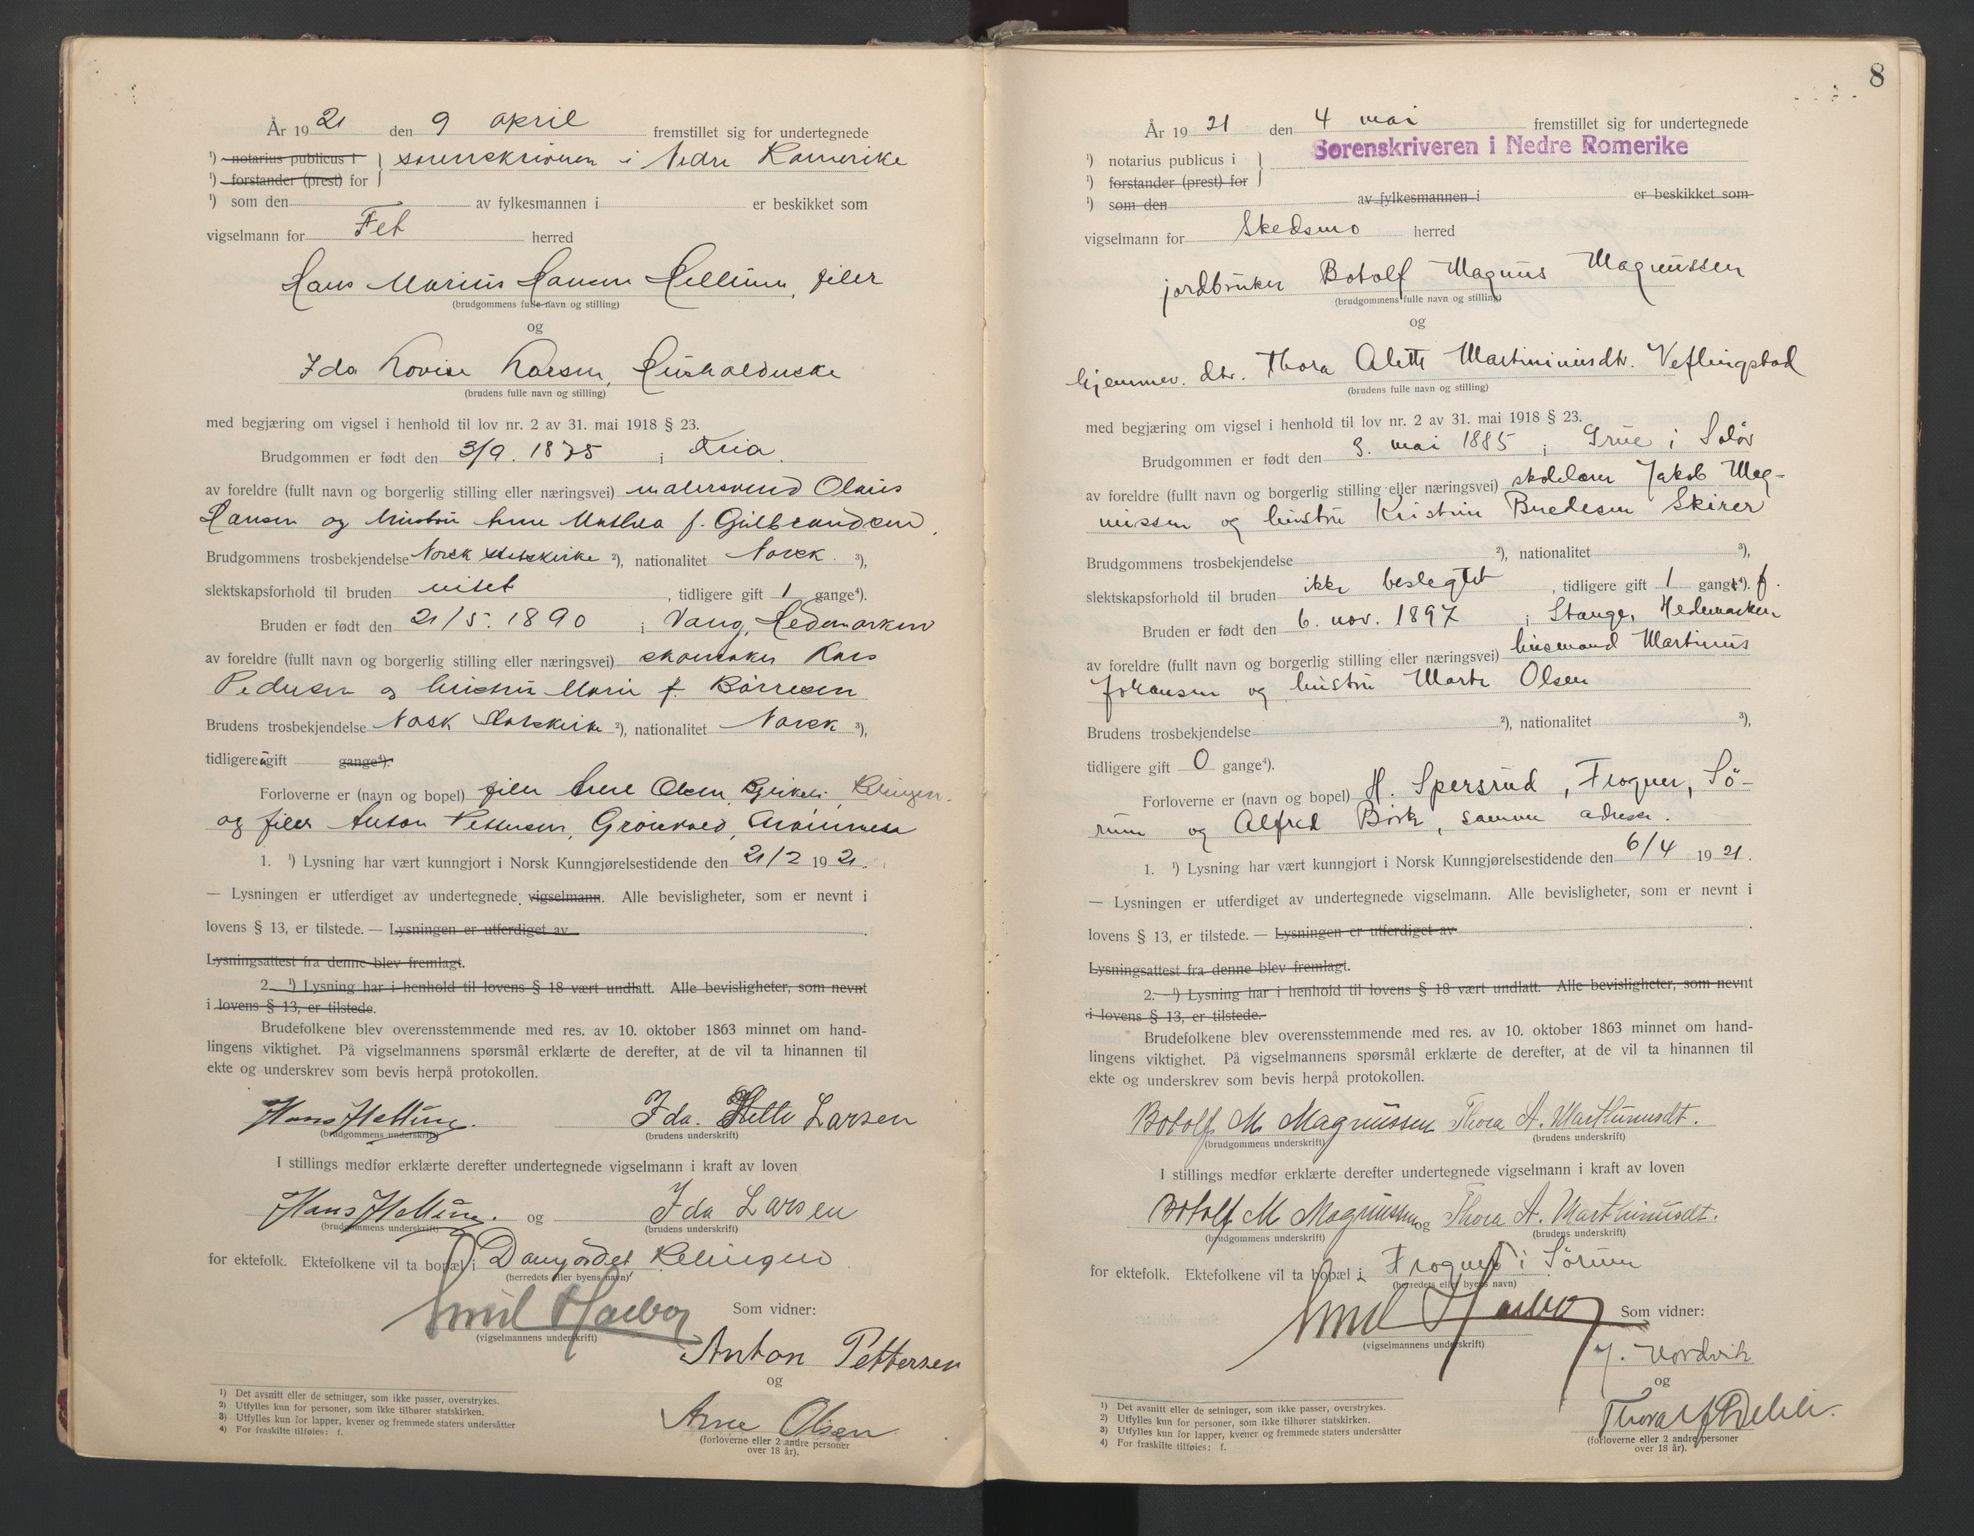 År 1921 den 9 april fremstillet sig for undertegnede
¹) notarius publicus i } sorenskriveren i Nedre Romerike
¹) forstander (prest) for
¹) som den av fylkesmannen i er beskikket som
vigselmann for Fet herred
Hans Marius Hansen Hellum, filer
(brudgommens fulle navn og stilling)
og
Ida Lovise Larsen, Husholderske
(brudens fulle navn og stilling)
med begjæring om vigsel i henhold til lov nr. 2 av 31. mai 1918 § 23.
Brudgommen er født den 3/9. 1875 i Kria.
av foreldre (fullt navn og borgerlig stilling eller næringsvei) malersvend Olaus
Hansen og hustru Anne Mathea f. Gulbrandsen
Brudgommens trosbekjendelse Norsk statskirke ²), nationalitet Norsk. ³),
slektskapsforhold til bruden intet , tidligere gift 1 gange⁴).
Bruden er født den 21/5. 1890 i Vang, Hedemarken
av foreldre (fullt navn og borgerlig stilling eller næringsvei) skomaker Lars
Pedersen og hustru Marie f. Børresen
Brudens trosbekjendelse Norsk Statskirke ²), nationalitet Norsk ³),
tidligere ugift gange⁴).
Forloverne er (navn og bopel) filer Arne Olsen, Relingen.
og filer Anton Pettersen, Grönvold,
1. ¹) Lysning har vært kunngjort i Norsk Kunngjørelsestidende den 21/2 1921.
— Lysningen er utferdiget av undertegnede vigselmann. Alle bevisligheter, som er nevnt i
lovens § 13, er tilstede. — Lysningen er utferdiget av .
Lysningsattest fra denne blev fremlagt.
2. ¹) Lysning har i henhold til lovens § 18 vært undlatt. Alle bevisligheter, som nevnt
i lovens § 13, er tilstede.
Brudefolkene blev overensstemmende med res. av 10. oktober 1863 minnet om hand-
lingens viktighet. På vigselmannens spørsmål erklærte de derefter, at de vil ta hinannen til
ekte og underskrev som bevis herpå protokollen.
Hans Hellum. Ida. Larsen
(brudgommens underskrift) (brudens underskrift)
I stillings medfør erklærte derefter undertegnede vigselmann i kraft av loven
Hans Hellum. og Ida Larsen
(brudgommens underskrift) (brudens underskrift)
for ektefolk. Ektefolkene vil ta bopæl i Damjordet Relingen
(herredets eller byens navn)
Emil Haavbo Som vidner:
(vigselmannens underskrift)
Anton Pettersen
og
Arne Olsen
(forloverne eller 2 andre personer
over 18 år).
¹) Det avsnitt eller de setninger, som ikke passer, overstrykes.
²) Utfylles kun for personer, som ikke tilhører statskirken.
³) Utfylles kun for lapper, kvener og fremmede staters undersåtter
⁴) For fraskilte tilføies: f.
8
År 1921 den 4 mai fremstillet sig for undertegnede
¹) notarius publicus i } Sorenskriveren i Nedre Romerike
¹) forstander (prest) for
¹) som den av fylkesmannen i er beskikket som
vigselmann for Skedsmo herred
jordbruker Botolf Magnus Magnussen
(brudgommens fulle navn og stilling)
og
hjemmev. dtr. Thora Alette Martiniusdtr. Veflingstad
(brudens fulle navn og stilling)
med begjæring om vigsel i henhold til lov nr. 2 av 31. mai 1918 § 23.
Brudgommen er født den 3. mai 1885 i Grue i Solør
av foreldre (fullt navn og borgerlig stilling eller næringsvei) skolelærer Jakob Mag-
nussen og hustru Kristine Bredesen Skirer
Brudgommens trosbekjendelse ²), nationalitet ³),
slektskapsforhold til bruden ikke beslegtet , tidligere gift 1 gange⁴). f.
Bruden er født den 6. nov. 1897 i Stange, Hedemarken
av foreldre (fullt navn og borgerlig stilling eller næringsvei) husmand Martinus
Johansen og hustru Marte Olsen
Brudens trosbekjendelse ²), nationalitet ³),
tidligere gift 0 gange⁴).
Forloverne er (navn og bopel) H. Spersrud, Frogner, Sö-
rum og Alfred Börk, samme adresse.
1. ¹) Lysning har vært kunngjort i Norsk Kunngjørelsestidende den 6/4 1921.
— Lysningen er utferdiget av undertegnede vigselmann. Alle bevisligheter, som er nevnt i
lovens § 13, er tilstede. — Lysningen er utferdiget av .
Lysningsattest fra denne blev fremlagt.
2. ¹) Lysning har i henhold til lovens § 18 vært undlatt. Alle bevisligheter, som nevnt
i lovens § 13, er tilstede.
Brudefolkene blev overensstemmende med res. av 10. oktober 1863 minnet om hand-
lingens viktighet. På vigselmannens spørsmål erklærte de derefter, at de vil ta hinannen til
ekte og underskrev som bevis herpå protokollen.
Botolf M. Magnussen Thora A. Marthinusdt.
(brudgommens underskrift) (brudens underskrift)
I stillings medfør erklærte derefter undertegnede vigselmann i kraft av loven
Botolf M Magnussen og Thora A. Marthinusdt.
(brudgommens underskrift) (brudens underskrift)
for ektefolk. Ektefolkene vil ta bopæl i Frogner i Sörum
(herredets eller byens navn)
Emil Haavbo Som vidner:
(vigselmannens underskrift)
J. Nordvik
og
(forloverne eller 2 andre personer
over 18 år).
¹) Det avsnitt eller de setninger, som ikke passer, overstrykes.
²) Utfylles kun for personer, som ikke tilhører statskirken.
³) Utfylles kun for lapper, kvener og fremmede staters undersåtter
⁴) For fraskilte tilføies: f.